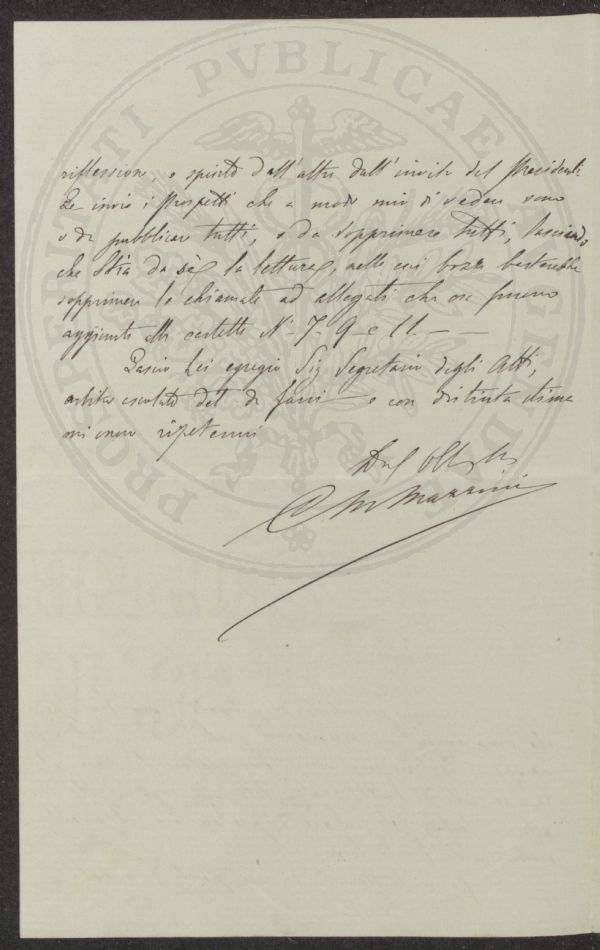 riflessione, e spinto dall'altra dall'invito del Presidente
Le invio i Prospetti che a modo mio di vedere sono
o da pubblicare tutti, o da sopprimere tutti, lasciando
che stia da sè la lettura, nelle cui bozze basterebbe
sopprimere le chiamate ad allegati che ora furono
aggiunti alle cartelle N. 7. 9 e 11. — —
Lascio Lei egregio Sig Segretario degli Atti,
arbitro del da farsi — e con distinta stima
mi onoro ripetermi
Mazzini
PROSPERITATI PVBLICAE